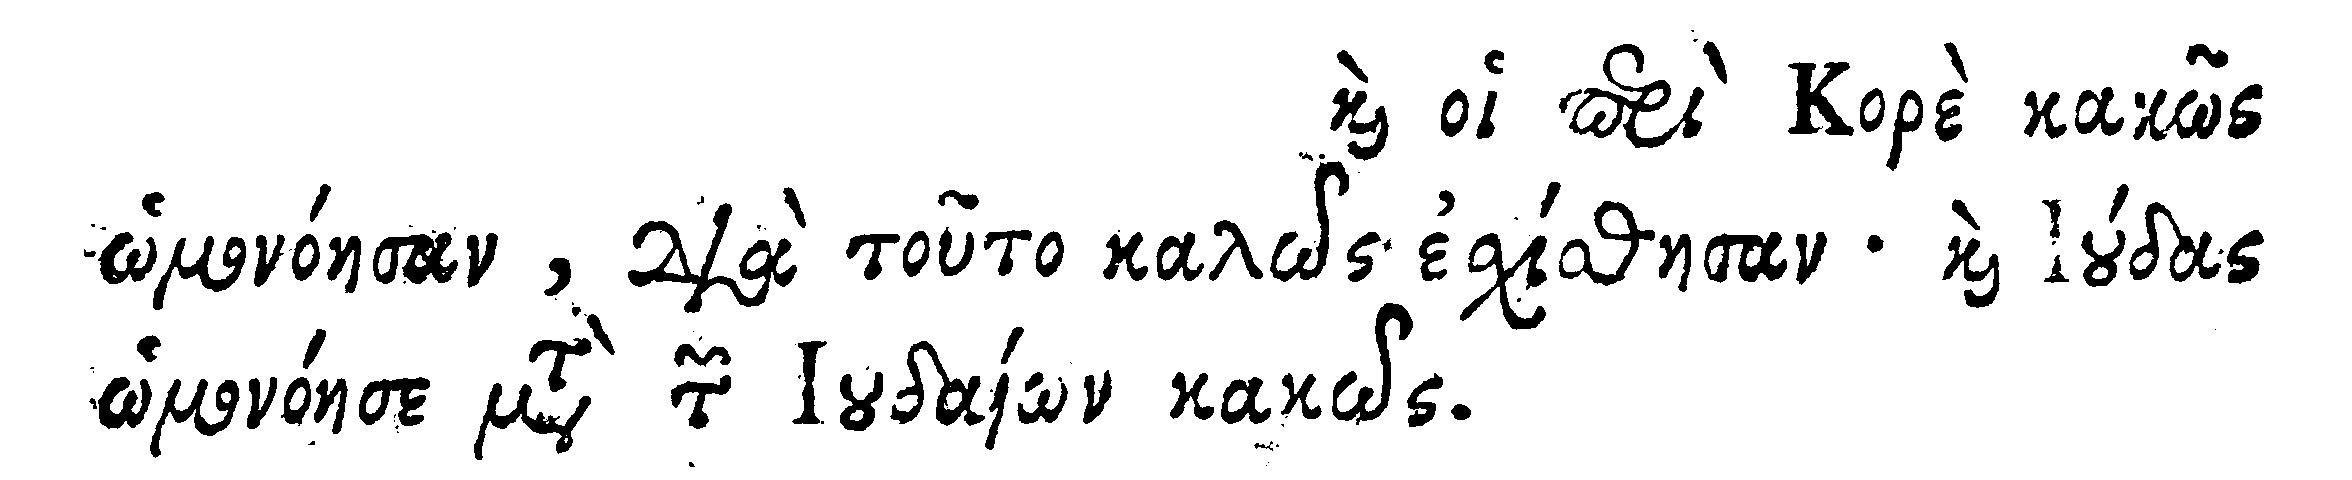 καὶ οἱ περὶ Κορὲ κακῶς
ὡμονόησαν, διὰ τοῦτο καλῶς ἐσχίσθησαν· καὶ Ἰούδας
ὡμονόησε μετὰ τῶν Ἰουδαίων κακῶς.